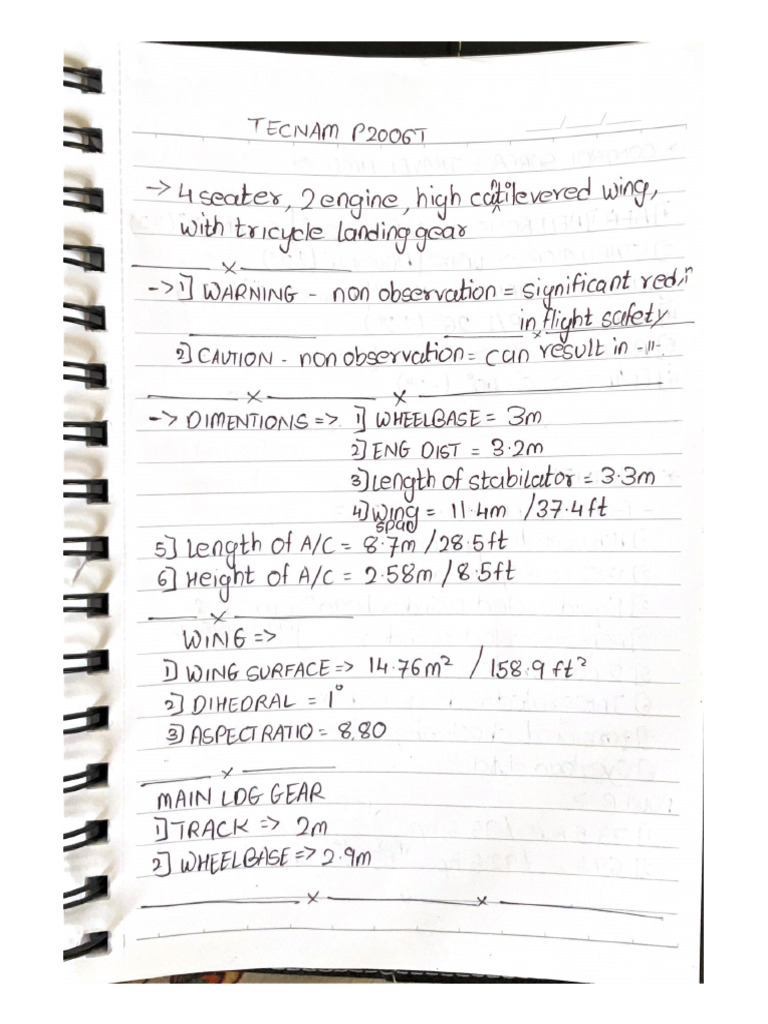 TECNAM P2006T
__/__/__
-> 4 seater, 2 engine, high catilevered wing,
with tricycle landing gear
-> 1] WARNING - non observation = significant red.n
in flight safety
2] CAUTION - non observation = can result in -11-
-> DIMENTIONS => 1] WHEELBASE = 3m
2] ENG DIST = 3.2m
3] Length of stabilator = 3.3m
4] wing span = 11.4m /37.4ft
5] Length of A/C = 8.7m / 28.5ft
6] Height of A/C = 2.58m / 8.5ft
WING =>
1] WING SURFACE => 14.76m² / 158.9 ft²
2] DIHEDRAL = 1°
3] ASPECT RATIO = 8.80
MAIN LDG GEAR
1] TRACK => 2m
2] WHEELBASE => 2.9m